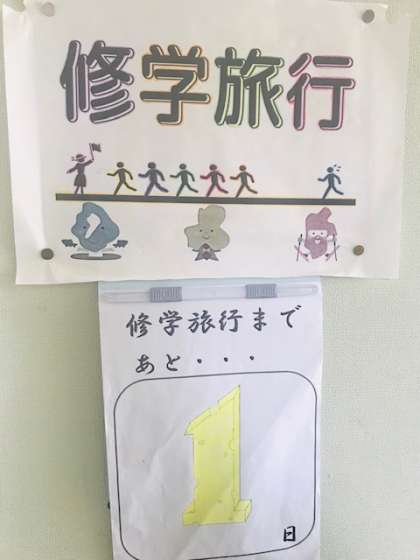 修学旅行
修学旅行まで
あと・・・
1
日